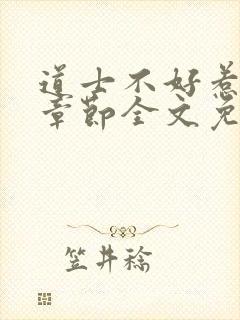 道士不好惹
章節全文免
笠井稔